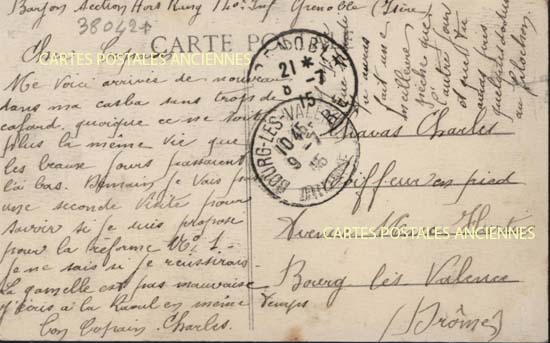 Barjon Section Hors Rang 140e Inf Grenoble (Isère)
38042
CARTE POSTALE
Cher Copain
Me Voici arrivé de nouveau
dans ma casba sans trop de
cafard, quoique ce ne soit
plus la même vie que
les beaux jours passaient
là bas. Demain je Vais pour
une seconde Visite pour
savoir si je suis proposé
pour la réforme No 1
je ne sais si je réussirais
La gamelle est pas mauvaise
J'écris à la Raoul en même Temps
Ton Copain Charles
tu nous
fait une
meilleure
que
l'autre jour
et que tu
nous
quelques
au
GRENOBLE
21 *
8 -7
15
BOURG-LES-VALENCE
10 45
9 -7
15
DROME
Chavas Charles
Coiffeur en pied
Avenue
Bourg lès Valence
(Drôme)
CARTES POSTALES ANCIENNES
CARTES POSTALES ANCIENNES